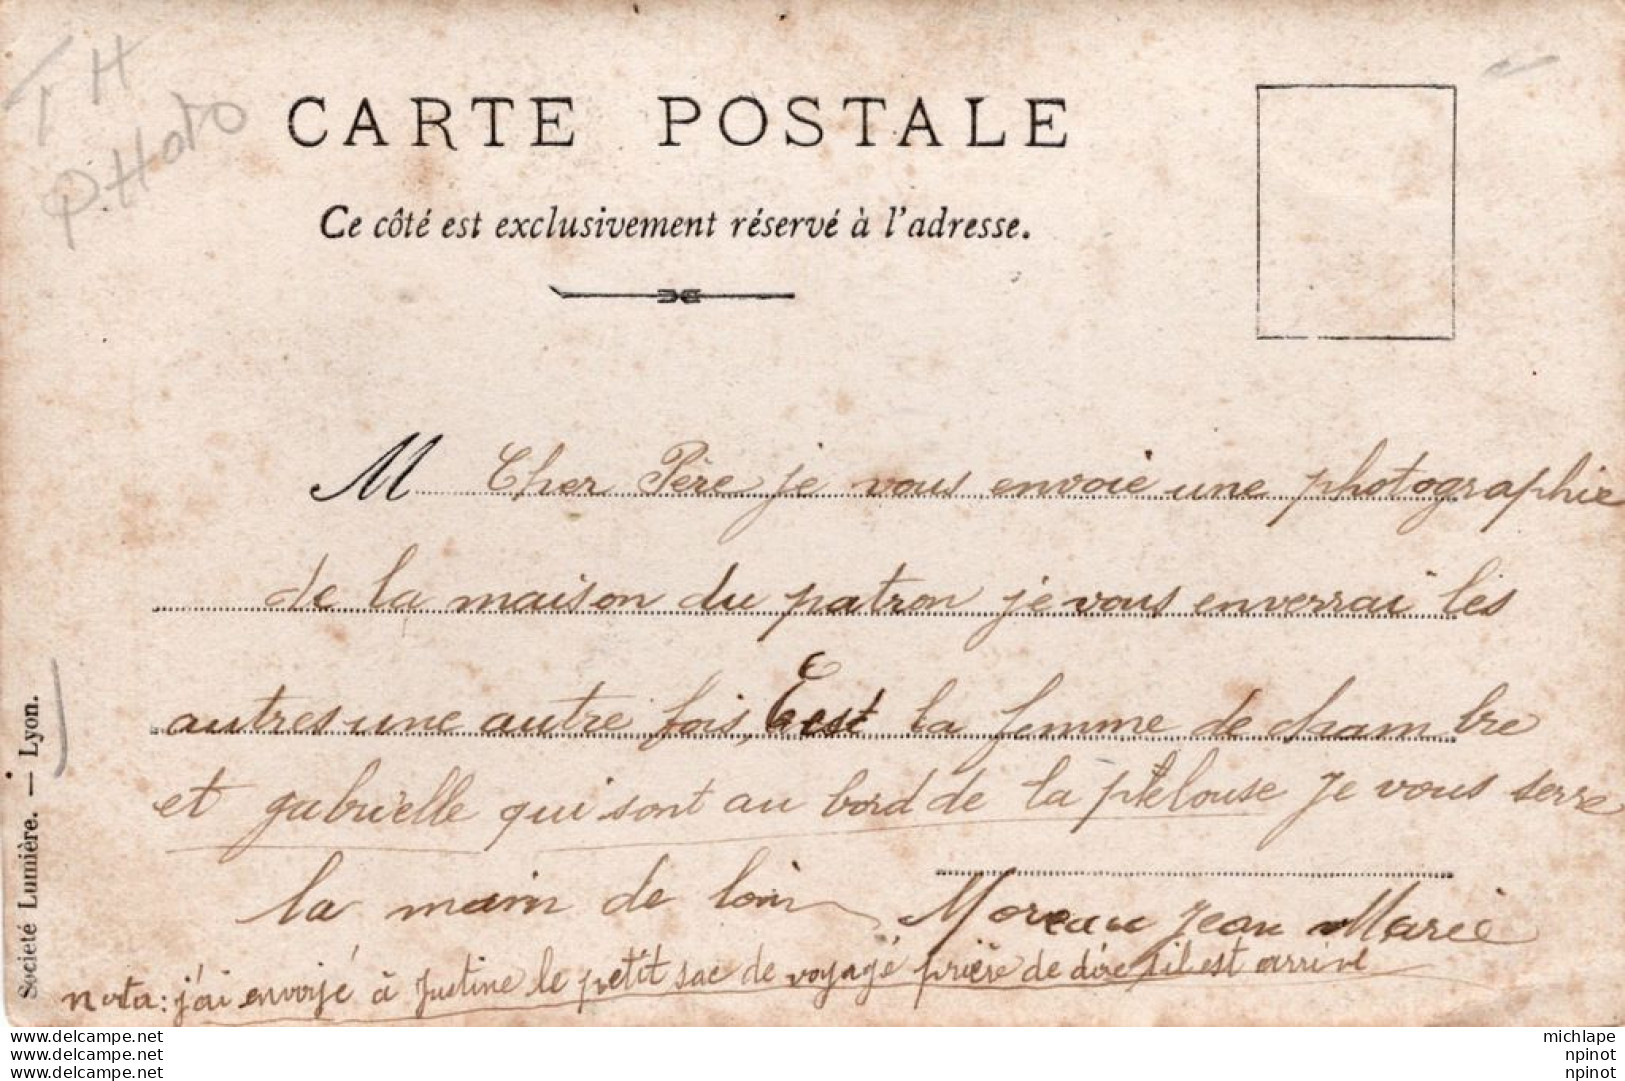 T H
PHOTO
CARTE POSTALE
Ce côté est exclusivement réservé à l'adresse.
M Cher Père je vous envoie une photographie
de la maison du patron je vous enverrai les
autres une autre fois, Cest la femme de chambre
et gabrielle qui sont au bord de la pelouse Je vous serre
la main de loin Moreau Jean Marie
nota: j'ai envoyé à Justine le petit sac de voyage prière de dire s'il est arrivé
Société Lumière. — Lyon.
www.delcampe.net michlape
www.delcampe.net npinot
www.delcampe.net npinot